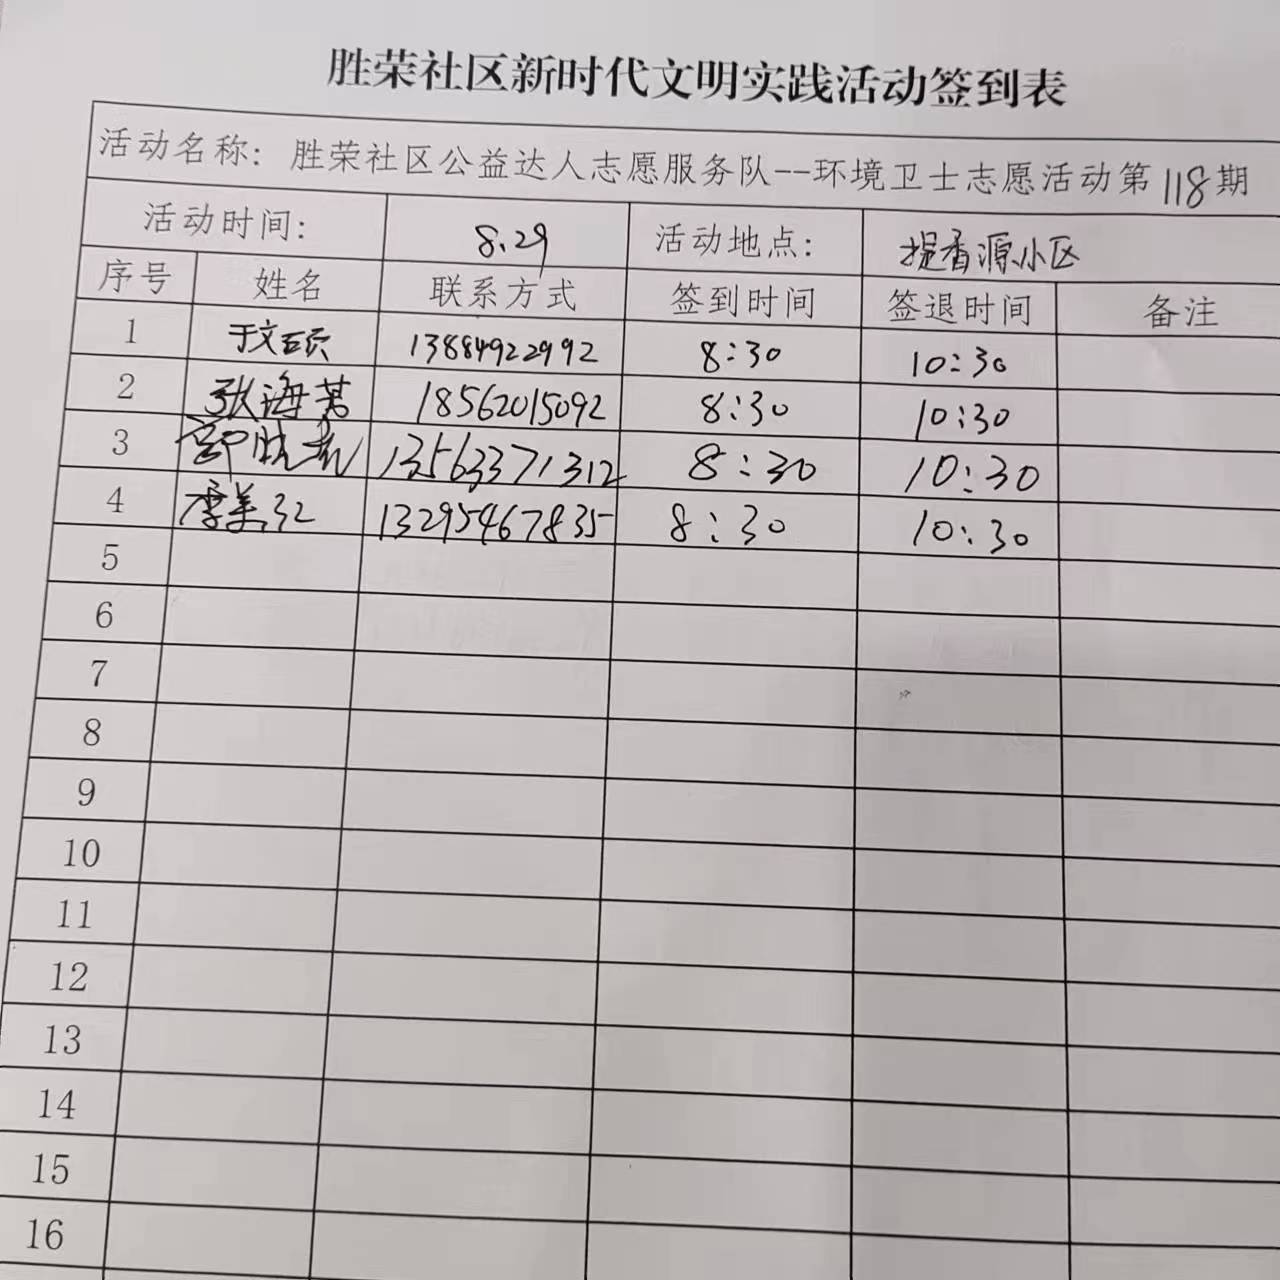 胜荣社区新时代文明实践活动签到表
活动名称: 胜荣社区公益达人志愿服务队--环境卫士志愿活动第118期
活动时间: 8.29 活动地点: 提香源小区
序号 姓名 联系方式 签到时间 签退时间 备注
1 于文 13884922992 8:30 10:30
2 张海 18562015092 8:30 10:30
3 13563371312 8:30 10:30
4 李美红 13295467835 8:30 10:30
5
6
7
8
9
10
11
12
13
14
15
16